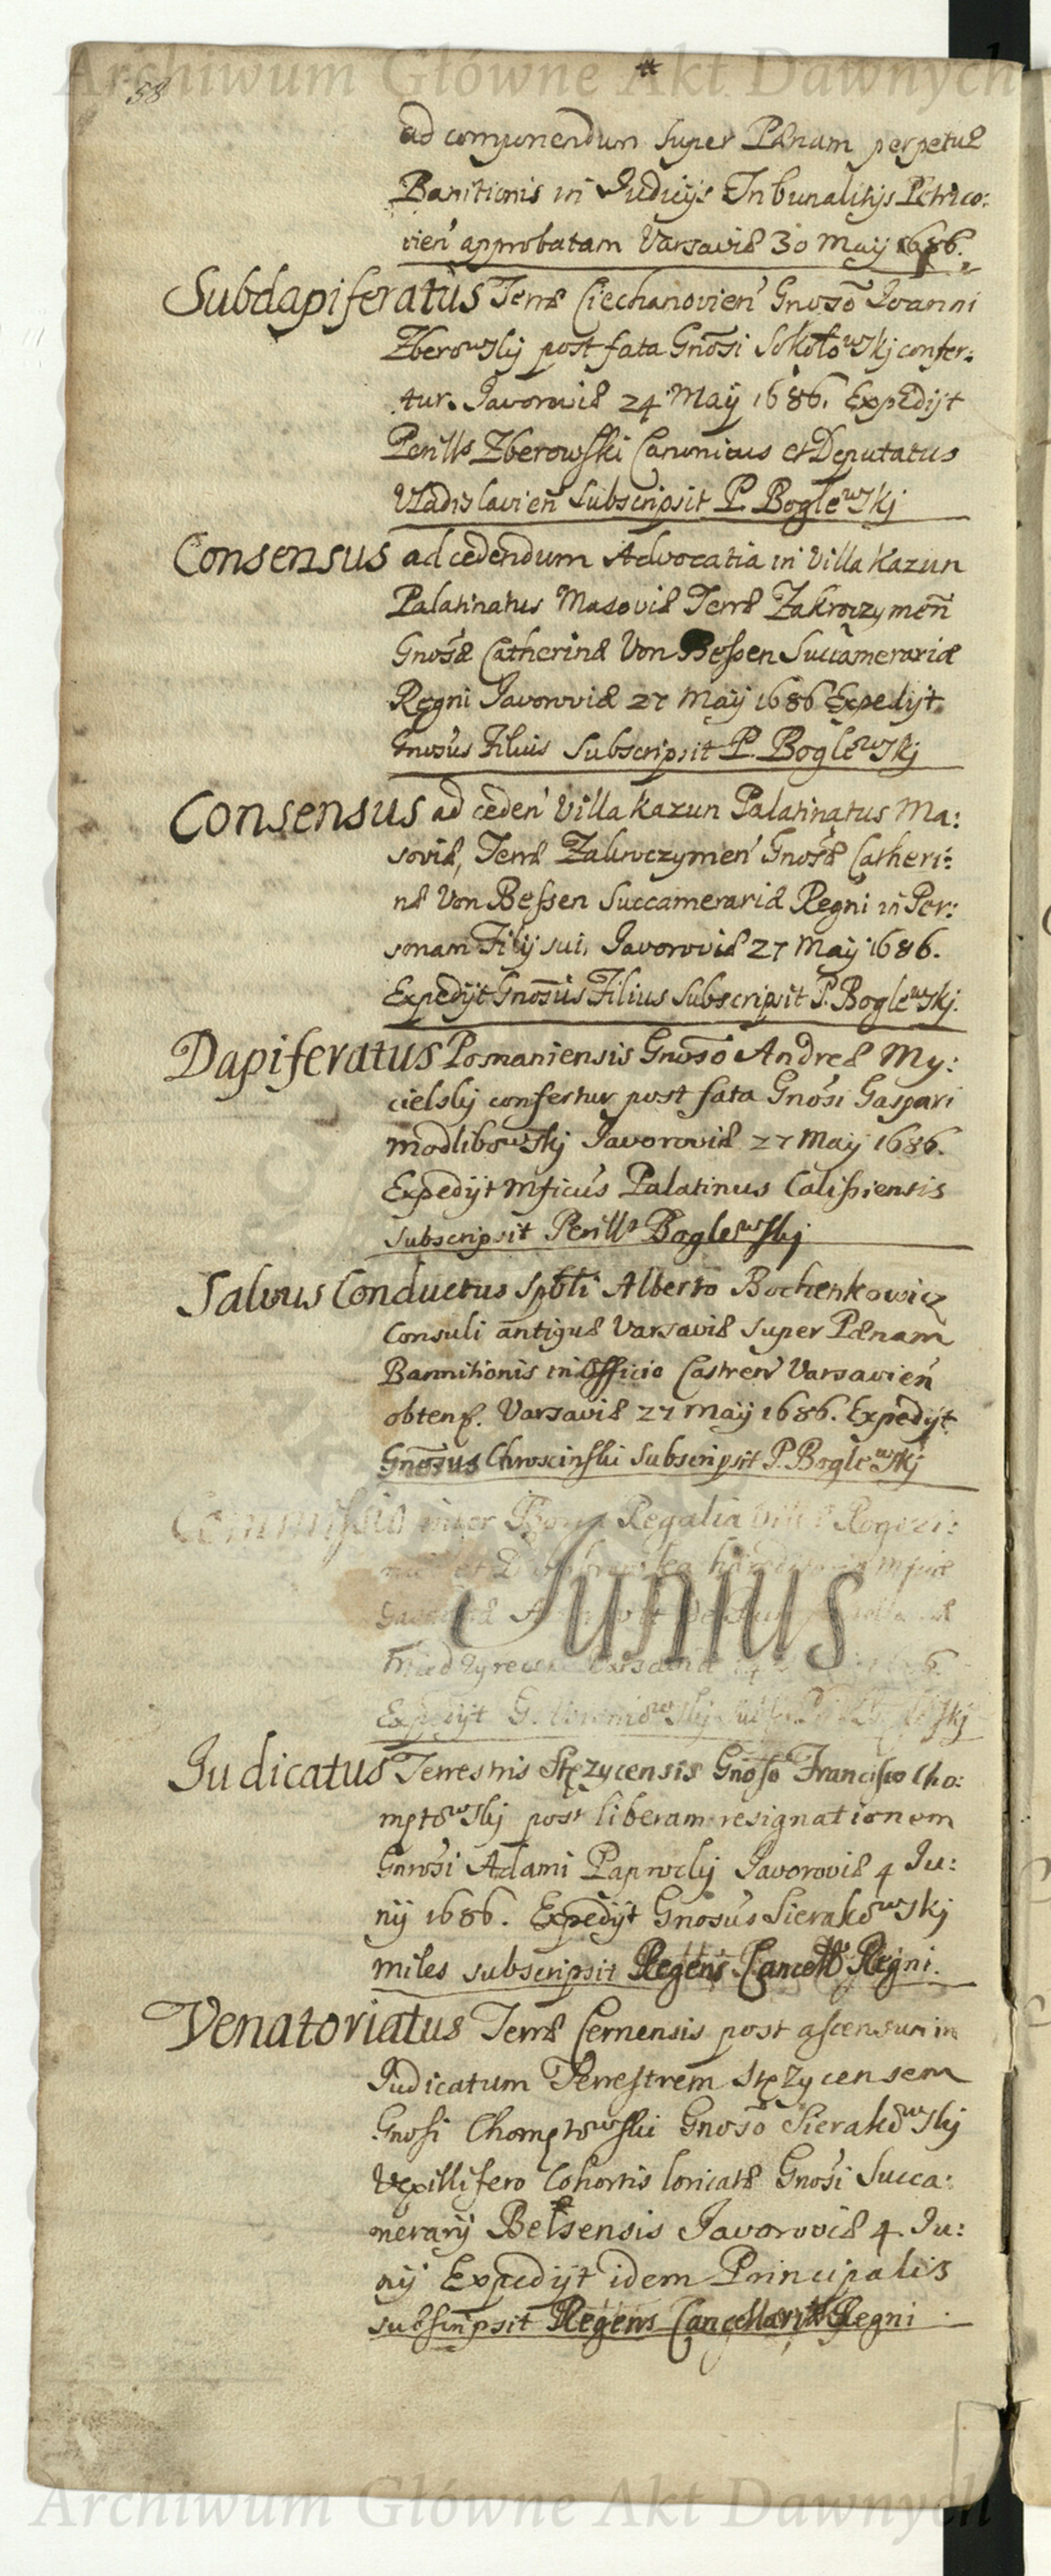 Archiwum Główne Akt Dawnych
58
ad componendum super Pænam perpetuæ
Banitionis in Judicijs Tribunalitijs Petrico:
vien̄ approbatam Varsaviæ 30 Maij 1686.
Subdapiferatus Terræ Ciechanovien̄ Gnoso Joanni
Zberowskij post fata Gnosi Sokołowskj confer:
tur. Javoroviæ 24 Maij 1686. Expedijt
Perills Zberowski Canonicus et Deputatus
Vladislavien̄ Subscripsit P. Boglewskj
Consensus ad cedendum Advocatia in Villa Kazun
Palatinatus Masoviæ Terræ Zakroczymen̄
Gnosæ Catherinæ Von Bessen Succamerariæ
Regni Javoroviæ 27 Maij 1686 Expedijt
Gnosus Filius Subscripsit P. Boglewskj
Consensus ad ceden̄ Villa Kazun Palatinatus Ma:
soviæ, Terræ Zakroczymen̄ Gnosæ Catheri:
næ Von Bessen Succamerariæ Regni in Per:
sonam Filij sui, Javoroviæ 27 Maij 1686.
Expedijt Gnosus Filius Subscripsit P. Boglewskj.
Dapiferatus Posnaniensis Gnoso Andreæ My:
cielskj confertur post fata Gnosi Gaspari
Modlibowskj Javoroviæ 27 Maij 1686.
Expedijt Mficus Palatinus Calissiensis
subscripsit Perills Boglewskj
Salvus Conductus Spbli Alberto Bochenkowicz
Consuli antiquæ Varsaviæ super Pænam
Bannitionis in Officio Castren̄ Varsavien̄
obten. Varsaviæ 27 Maij 1686. Expedijt
Gnosus Chroscinski Subscripsit P. Boglewskj
Commissio inter Bona Regalia
Junius
Expedijt G.
Judicatus Terrestris Stęzycensis Gnoso Francisco Cho:
mętowskj post liberam resignationem
Gnosi Adami Paprockj Javoroviæ 4 Ju:
nij 1686. Expedijt Gnosus Sierakowskj
miles subscripsit Regens Cancell Regni.
Venatoriatus Terræ Cernensis post ascensum in
Judicatum Terrestrem Stęzycensem
Gnosi Chomętowski Gnoso Sierakowskj
Vexillifero Cohortis loricatæ Gnosi Succa:
merarij Belsensis Javoroviæ 4 Ju:
nij Expedijt idem Principalis
subscripsit Regens Cancellariæ Regni
Archiwum Główne Akt Dawnych